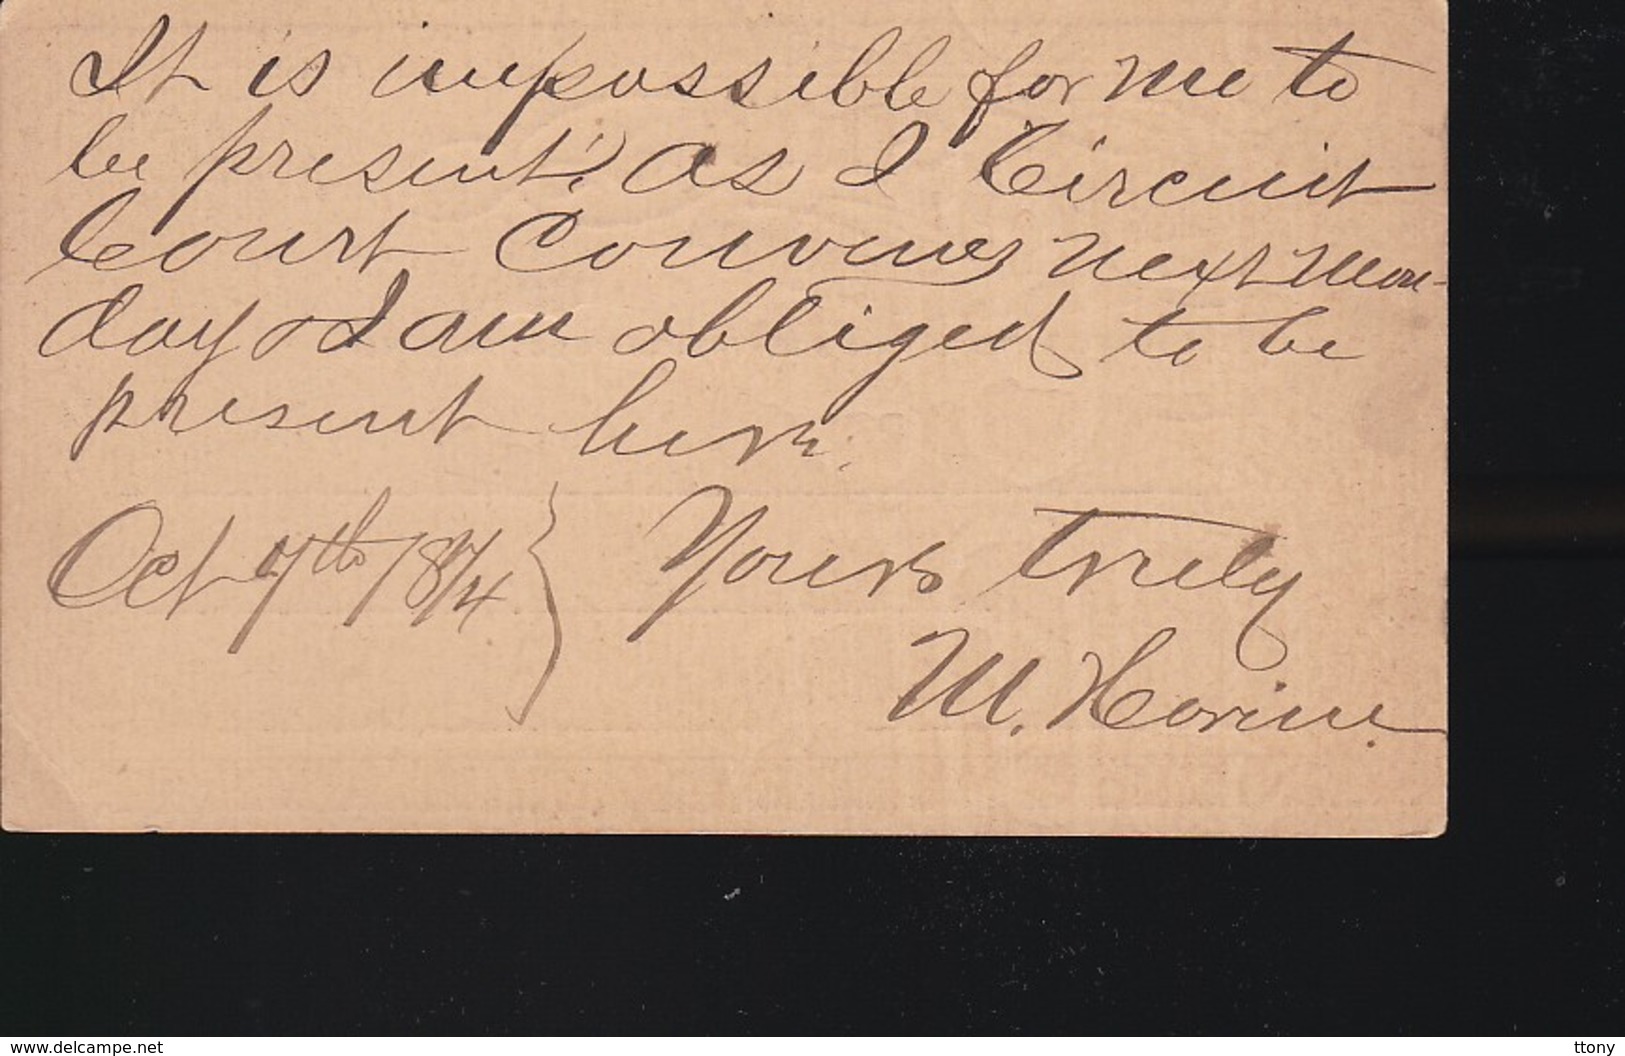 It is impossible for me to
be present, as I Circuit
Court Convenes next Mon-
day & I am obliged to be
present here.
Oct 7th 1874 } Yours truly
M. Horine.
www.delcampe.net
ttony